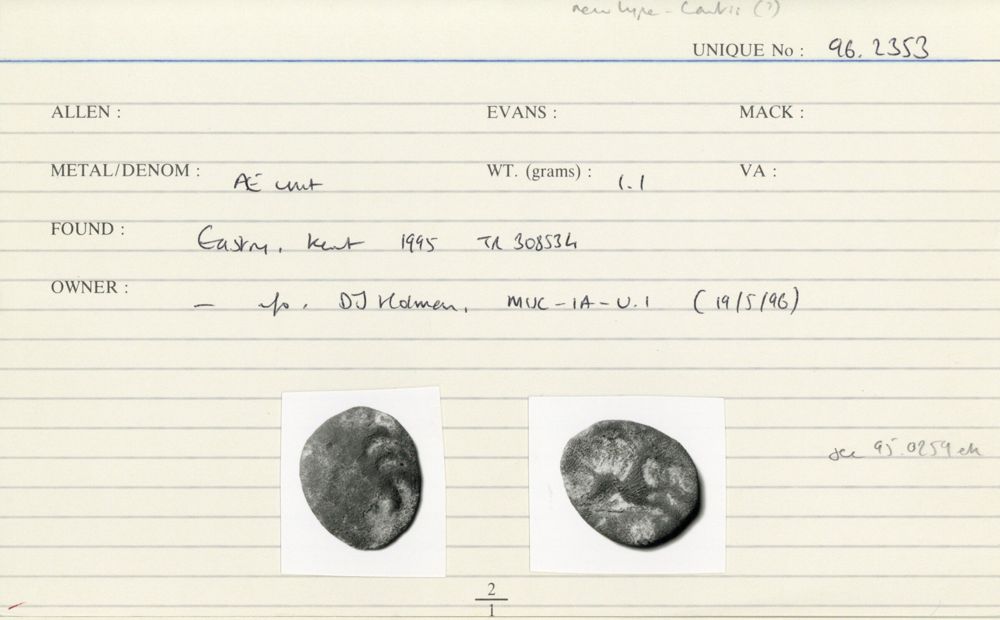 new type - Cantii (?)
UNIQUE No : 96.2353
ALLEN : EVANS : MACK :
METAL/DENOM : Æ unit WT. (grams) : 1.1 VA :
FOUND : Eastry, Kent 1995 TR 308534
OWNER : — info. DJ Holman, MUC-IA-U.1 (19/5/96)
see 95.0259 etc
2
1